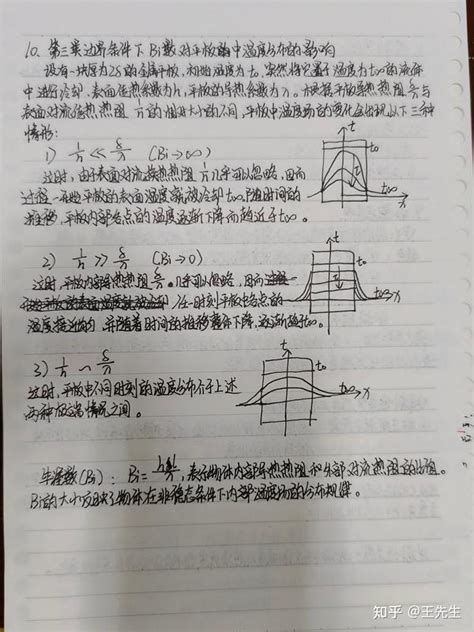 10. 第三类边界条件下Bi数对平板的中温度分布的影响
设有一块厚为2δ的金属平板,初始温度为t₀,突然将它置于温度为t∞的流体
中进行冷却,表面传热系数为h,平板的导热系数为λ。根据平板导热热阻δ/λ与
表面对流传热热阻1/h的相对大小的不同,平板中温度场的变化会出现以下三种
情形:
1) 1/h << δ/λ (Bi→∞)
这时,由于表面对流换热热阻1/h几乎可以忽略,因而
过程一开始平板的表面温度就被冷却t∞,随着时间的
推移,平板内部各点的温度逐渐下降而趋近于t∞。
t
t₀
t∞
x
2) 1/h >> δ/λ (Bi→0)
这时,平板内部导热热阻δ/λ几乎可以忽略,因而
任一时刻平板中各点的
温度接近均匀,并随着时间的推移整体下降,逐渐趋于t∞。
t
t₀
t∞
x
3) 1/h ~ δ/λ
这时,平板中不同时刻的温度分布介于上述
两种极端情况之间。
t
t₀
t∞
x
毕渥数(Bi): Bi=hδ/λ,表示物体内部导热热阻和外部对流热阻的比值。
Bi的大小反映了物体在非稳态条件下内部温度场的分布规律。
知乎 @王先生